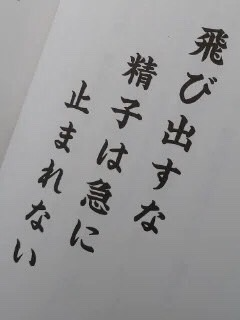 飛び出すな
精子は急に
止まれない